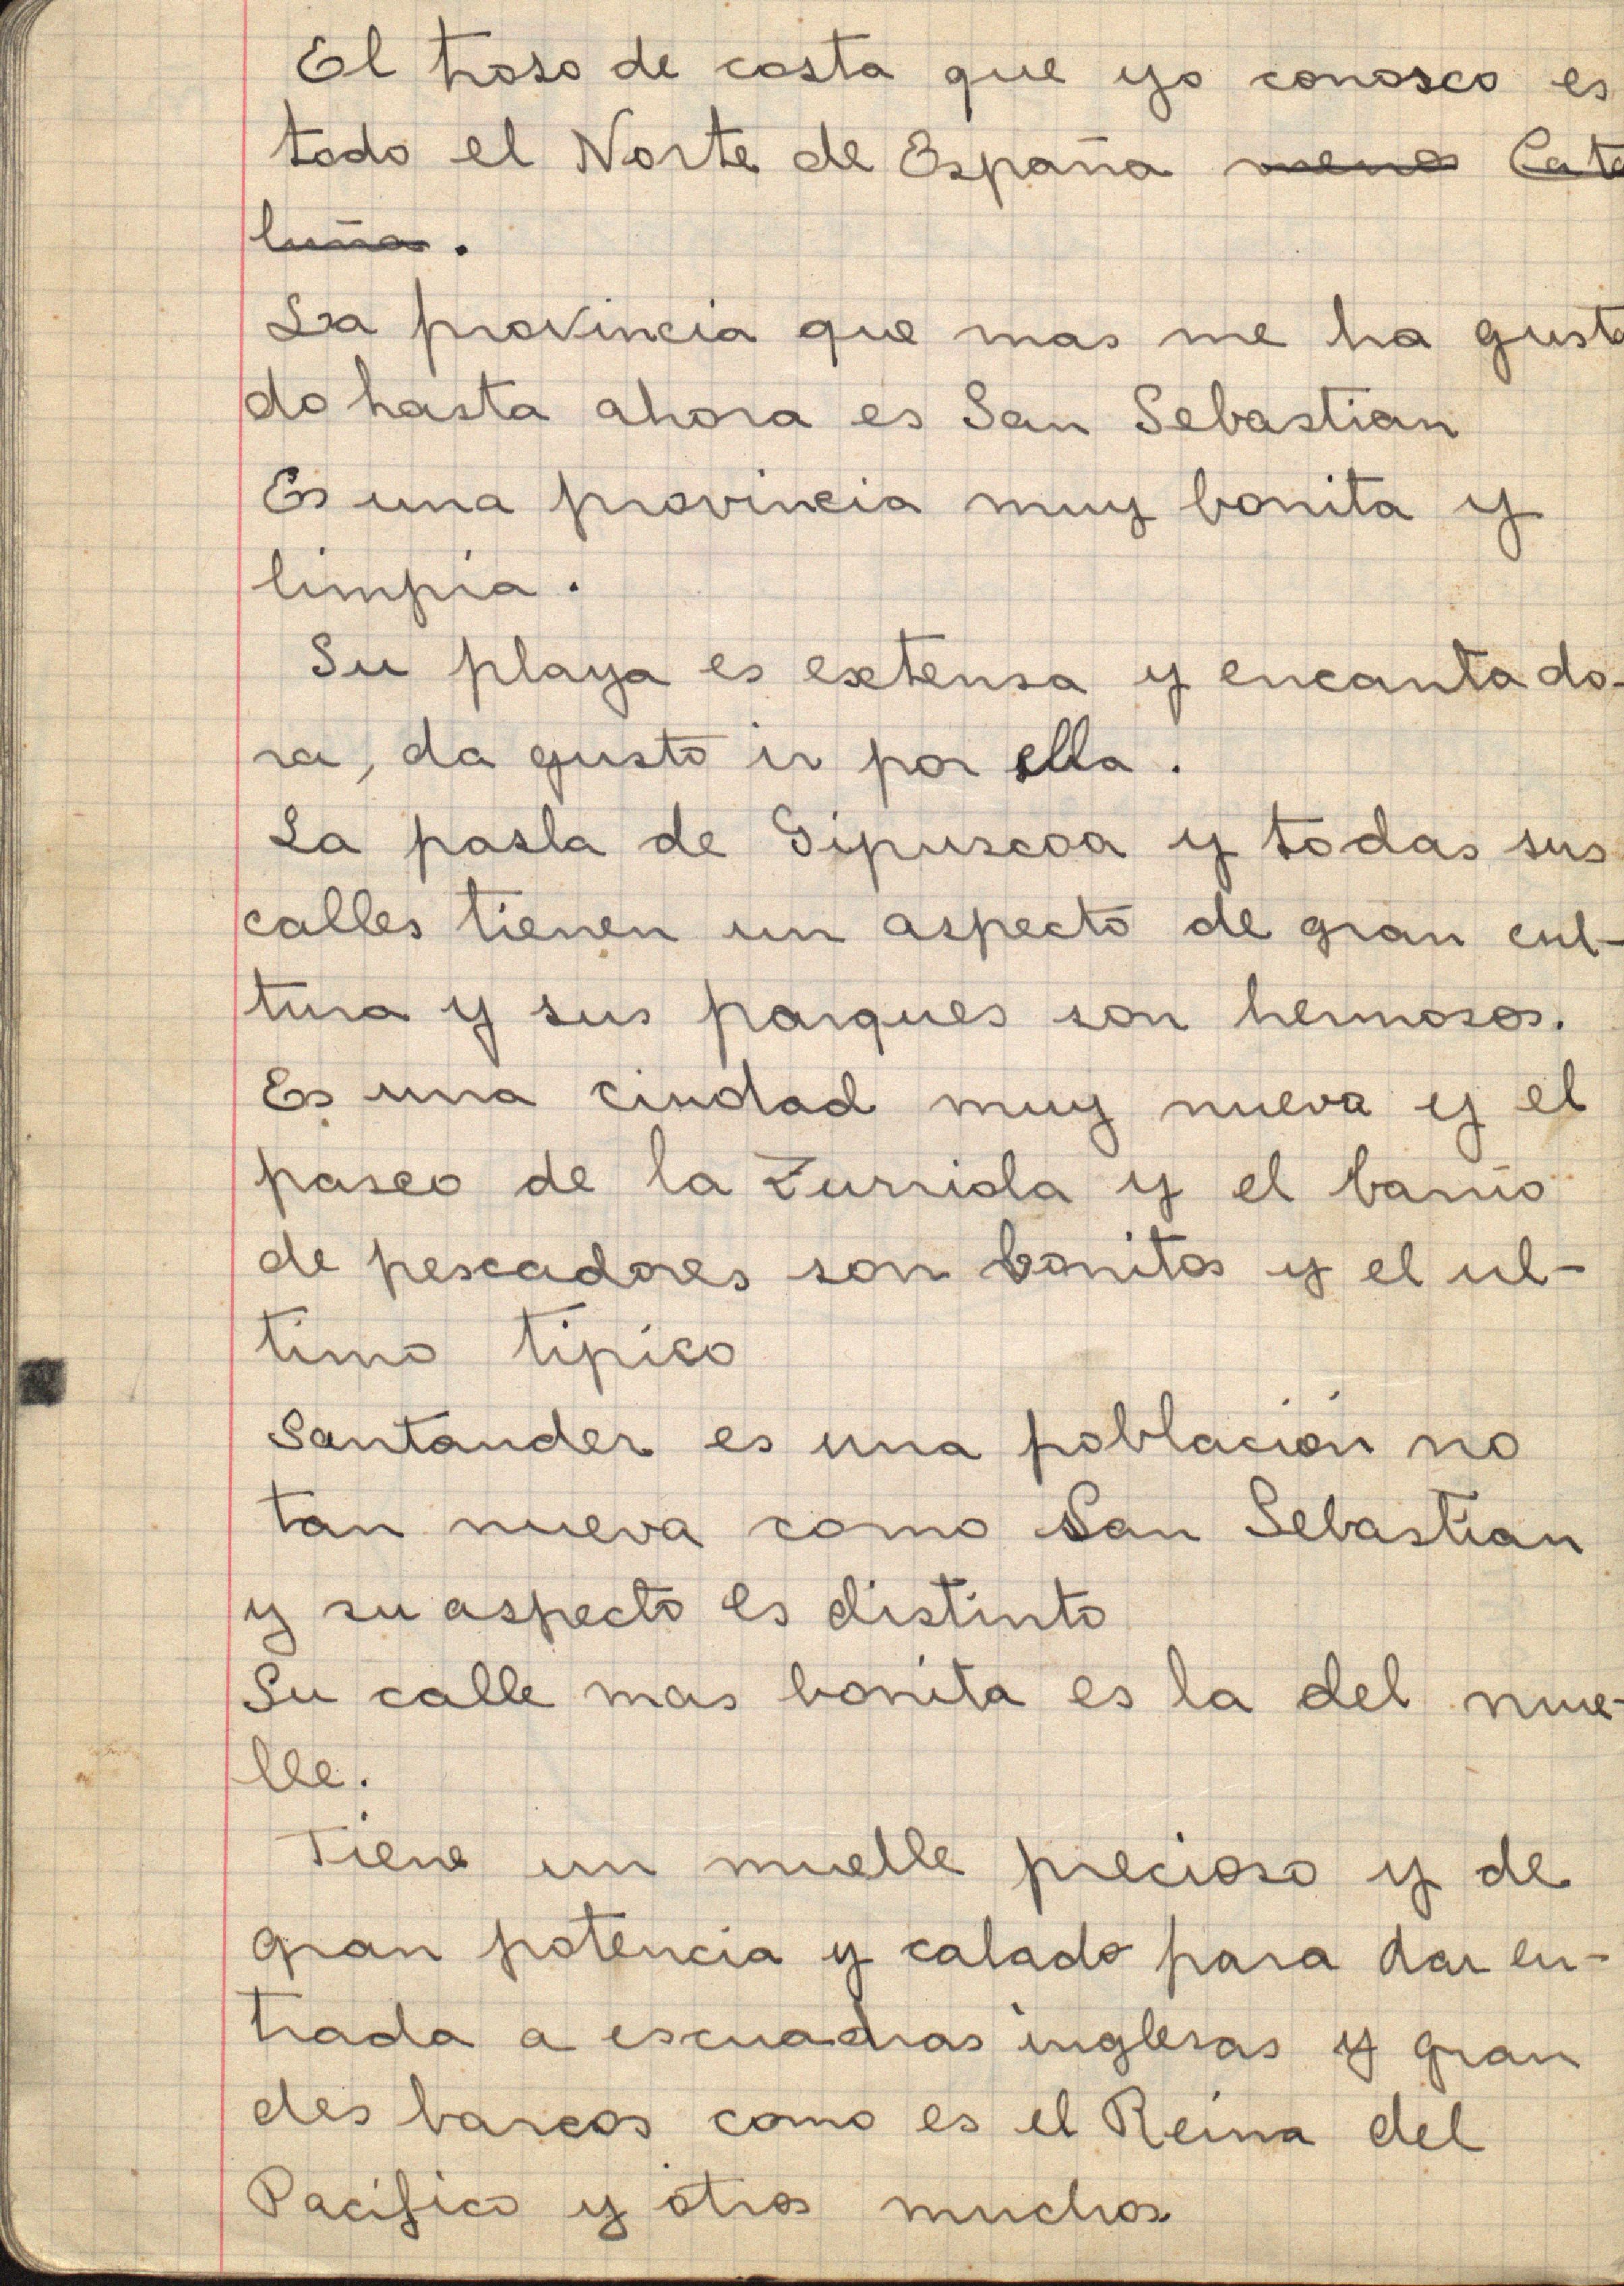 El troso de costa que yo conosco es
todo el Norte de España menos Cata
luña.
La provincia que mas me ha gusta
do hasta ahora es San Sebastian
Es una provincia muy bonita y
limpia.
Su playa es extensa y encantado-
ra, da gusto ir por ella.
La pasla de Gipuscoa y todas sus
calles tienen un aspecto de gran cul-
tura y sus parques son hermosos.
Es una ciudad muy nueva y el
paseo de la Zurriola y el barrio
de pescadores son bonitos y el ul-
timo tipico
Santander es una población no
tan nueva como San Sebastian
y su aspecto es distinto
Su calle mas bonita es la del mue-
lle.
Tiene un muelle precioso y de
gran potencia y calado para dar en-
trada a escuadras inglesas y gran
des barcos como es el Reina del
Pacífico y otros muchos